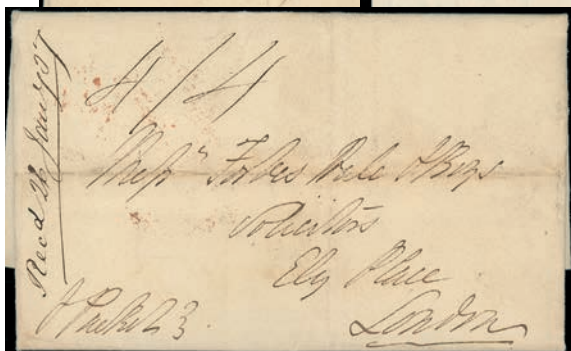 4/4
Recd 26 Jany 37
Messrs Forbes Hale & Boys
Solicitors
Ely Place
London
Packet 3